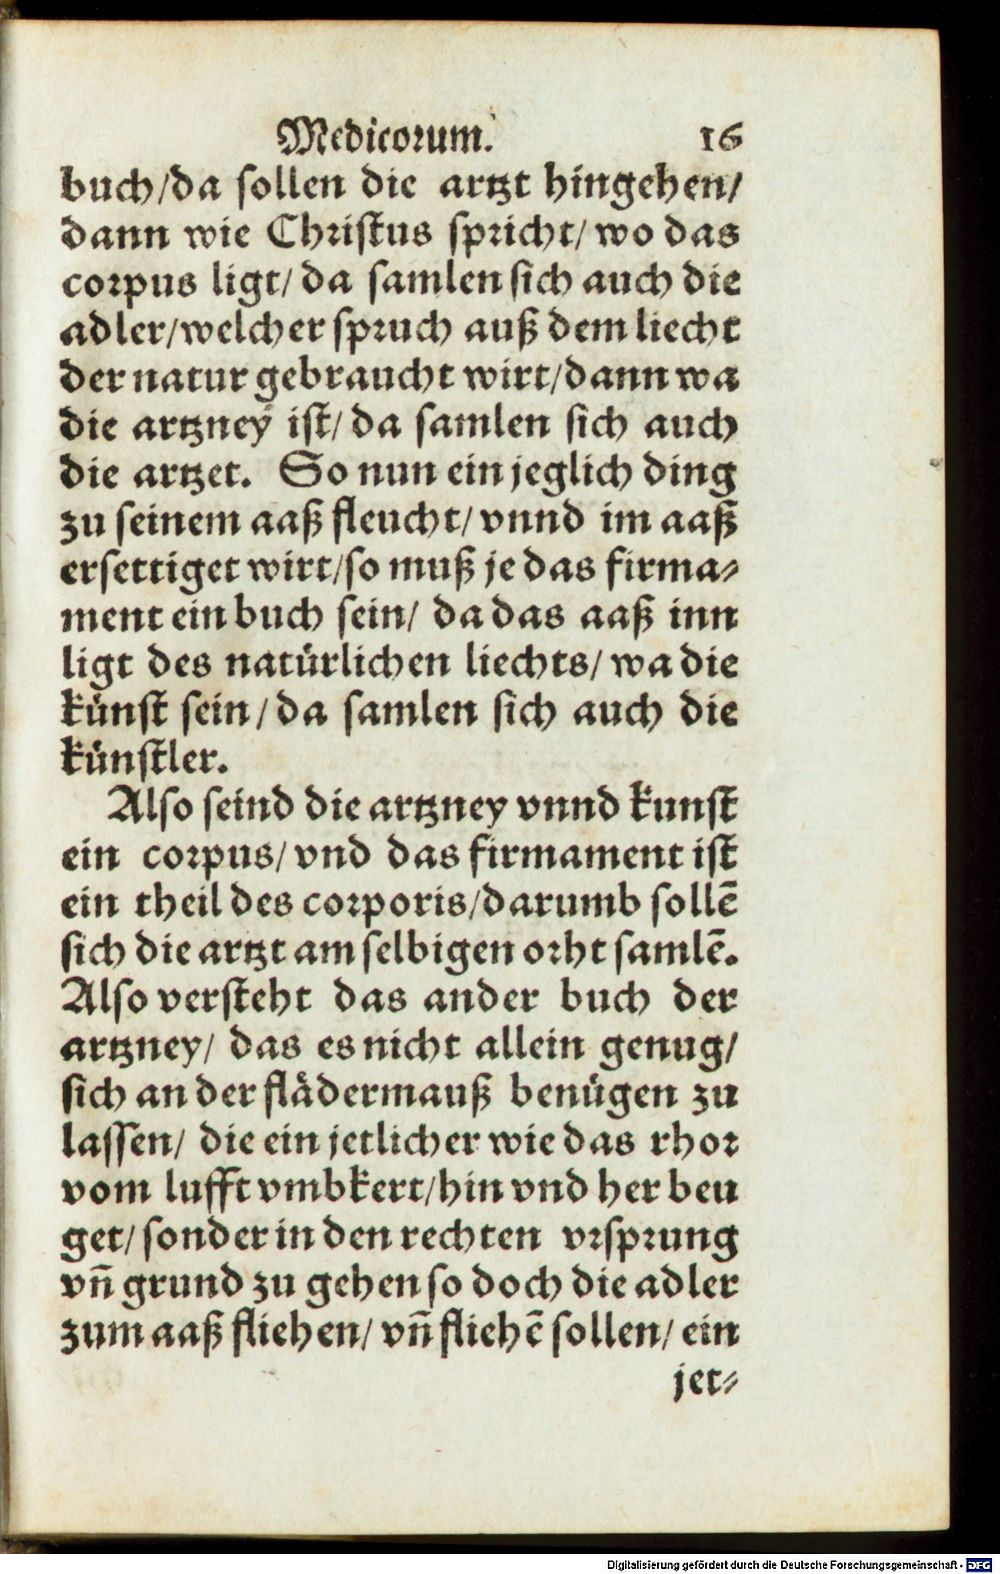 Medicorum. 16
buch/da sollen die artzt hingehen/
dann wie Christus spricht/ wo das
corpus ligt/ da samlen sich auch die
adler/welcher spruch auß dem liecht
der natur gebraucht wirt/dann wa
die artzney ist/ da samlen sich auch
die artzet. So nun ein jeglich ding
zu seinem aaß fleucht/ vnnd im aaß
ersettiget wirt/so muß je das firma⸗
ment ein buch sein/ da das aaß inn
ligt des natürlichen liechts/ wa die
künst sein/da samlen sich auch die
künstler.
Also seind die artzney vnnd kunst
ein corpus/ vnd das firmament ist
ein theil des corporis/darumb sollē
sich die artzt am selbigen orht samlē.
Also versteht das ander buch der
artzney/ das es nicht allein genug/
sich an der flädermauß benügen zu
lassen/ die ein jetlicher wie das rhor
vom lufft vmbkert/hin vnd her beu
get/ sonder in den rechten vrsprung
vñ grund zu gehen so doch die adler
zum aaß fliehen/ vñ fliehē sollen/ ein
jet⸗
Digitalisierung gefördert durch die Deutsche Forschungsgemeinschaft - DFG